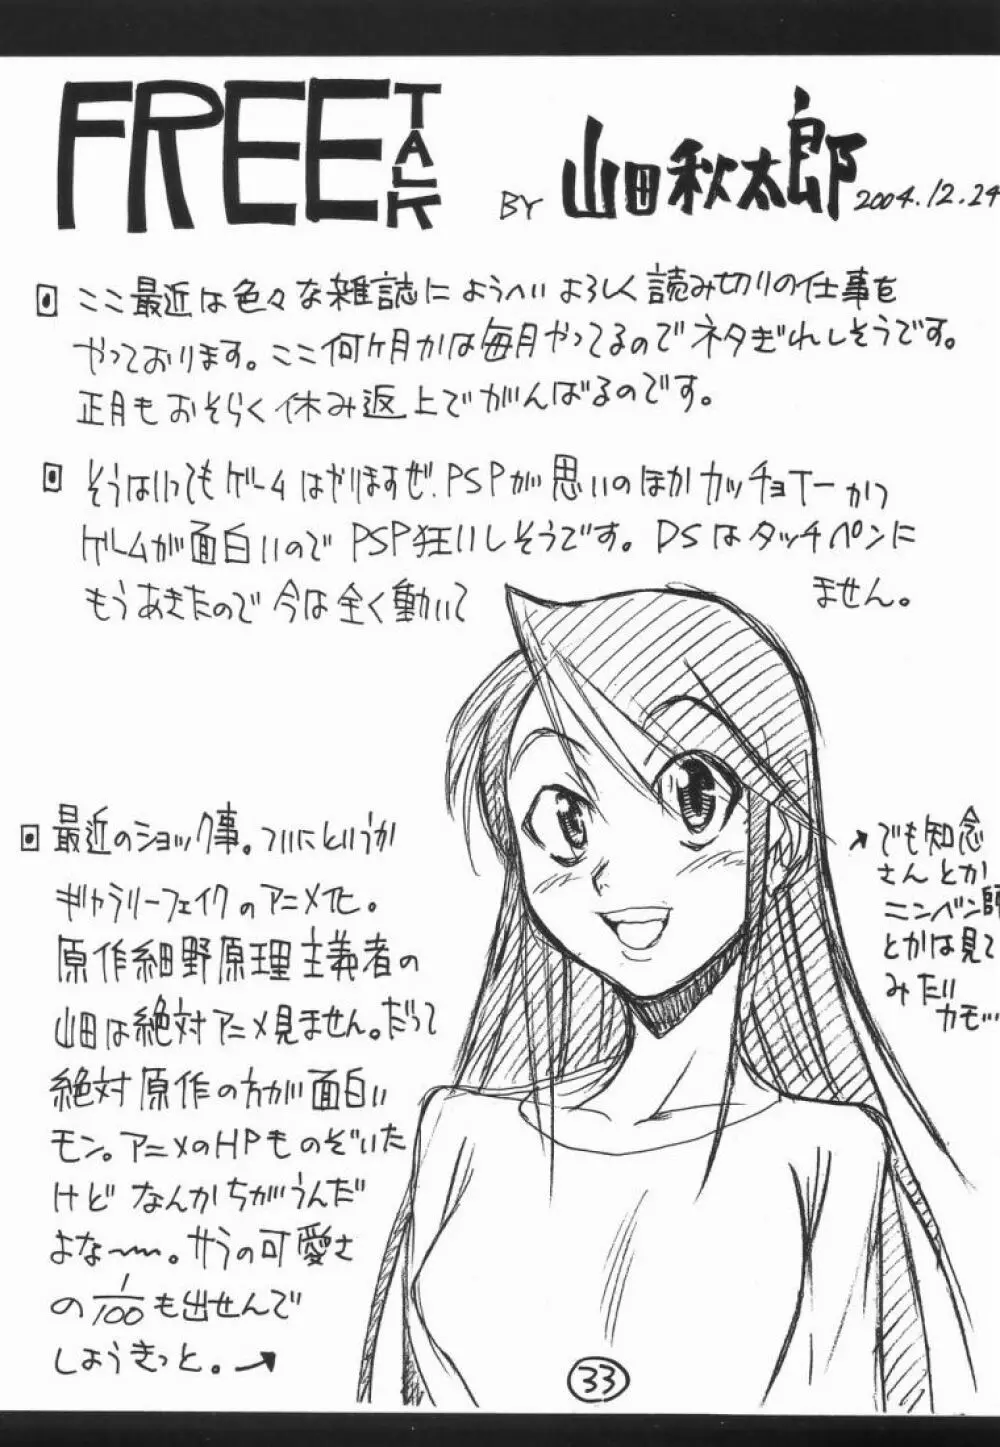 FREE TALK
BY 山田秋太郎 2004.12.24
ここ最近は色々な雑誌にようへいよろしく読み切りの仕事を
やっております。ここ何ヶ月かは毎月やってるのでネタぎれしそうです。
正月もおそらく休み返上でがんばるのです。
そうはいってもゲームはやりますぜ、PSPが思いのほかカッチョエーかつ
ゲームが面白いのでPSP狂いしそうです。DSはタッチペンに
もうあきたので今は全く動いて ません。
最近のショック事。ついにというか
ギャラリーフェイクのアニメ化。
原作細野原理主義者の
山田は絶対アニメ見ません。だって
絶対原作の方が面白い
モン。アニメのHPものぞいた
けどなんかちがうんだ
よな〜〜。サラの可愛さ
の1/100も出せんで
しょうきっと。→
→でも知念
さんとか
ニンベン師
とかは見て
みたい
カモ…
33